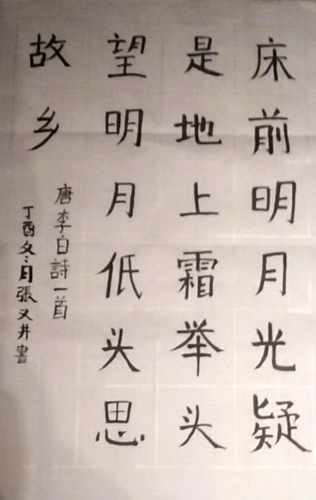 床前明月光疑
是地上霜举头
望明月低头思
故乡
唐李白詩一首
丁酉冬月張又井書